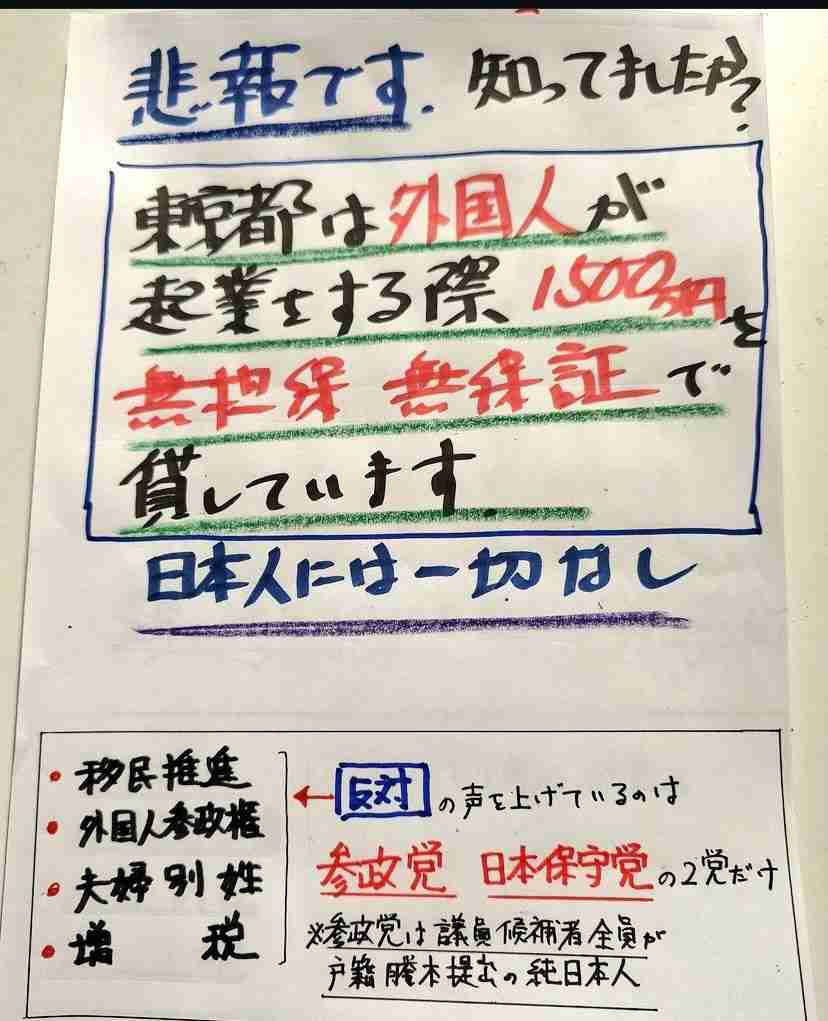 悲報です. 知ってましたか?
東京都は外国人が
起業をする際 1500万円を
無担保 無保証で
貸しています
日本人には一切なし
・移民推進
・外国人参政権
・夫婦別姓
・増 税
← 反対の声を上げているのは
参政党 日本保守党の2党だけ
※参政党は議員候補者全員が
戸籍謄本提出の純日本人